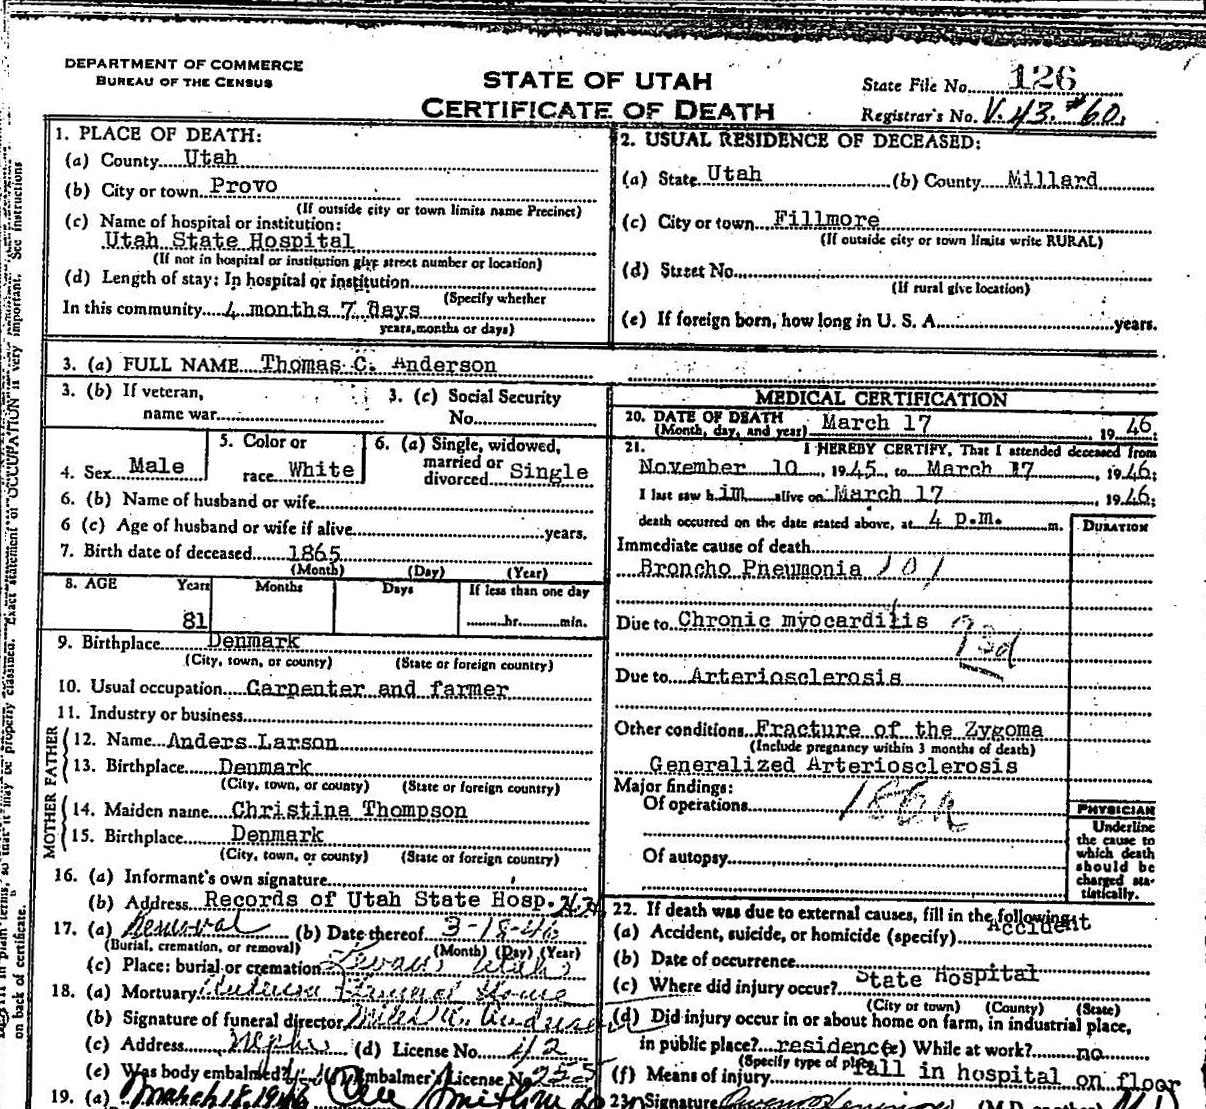 DEPARTMENT OF COMMERCE
BUREAU OF THE CENSUS
STATE OF UTAH
CERTIFICATE OF DEATH
State File No. 126
Registrar's No. V.43 #60.
1. PLACE OF DEATH:
(a) County Utah
(b) City or town Provo
(If outside city or town limits name Precinct)
(c) Name of hospital or institution:
Utah State Hospital
(If not in hospital or institution give street number or location)
(d) Length of stay: In hospital or institution
(Specify whether
In this community 4 months 7 days
years, months or days)
2. USUAL RESIDENCE OF DECEASED:
(a) State Utah (b) County Millard
(c) City or town Fillmore
(If outside city or town limits write RURAL)
(d) Street No.
(If rural give location)
(e) If foreign born, how long in U. S. A. years.
3. (a) FULL NAME Thomas C. Anderson
3. (b) If veteran,
name war
3. (c) Social Security
No.
4. Sex Male
5. Color or
race White
6. (a) Single, widowed,
married or
divorced Single
6. (b) Name of husband or wife
6 (c) Age of husband or wife if alive years.
7. Birth date of deceased 1865
(Month) (Day) (Year)
8. AGE Years Months Days If less than one day
81 hr. min.
9. Birthplace Denmark
(City, town, or county) (State or foreign country)
10. Usual occupation Carpenter and farmer
11. Industry or business
FATHER
12. Name Anders Larson
13. Birthplace Denmark
(City, town, or county) (State or foreign country)
MOTHER
14. Maiden name Christina Thompson
15. Birthplace Denmark
(City, town, or county) (State or foreign country)
16. (a) Informant's own signature
(b) Address Records of Utah State Hosp.
17. (a) Removal (b) Date thereof 3-18-46
(Burial, cremation, or removal) (Month) (Day) (Year)
(c) Place: burial or cremation Levan, Utah
18. (a) Mortuary Anderson Funeral Home
(b) Signature of funeral director
(c) Address Nephi (d) License No. 112
(e) Was body embalmed? Embalmer's License No. 255
19. (a) March 18, 1946
MEDICAL CERTIFICATION
20. DATE OF DEATH March 17 1946.
(Month, day, and year)
21. I HEREBY CERTIFY, That I attended deceased from
November 10, 1945, to March 17, 1946;
I last saw him alive on March 17, 1946;
death occurred on the date stated above, at 4 p.m. m.
DURATION
Immediate cause of death
Broncho Pneumonia 101
Due to Chronic myocarditis 93d
Due to Arteriosclerosis
Other conditions Fracture of the Zygoma
(Include pregnancy within 3 months of death)
Generalized Arteriosclerosis
Major findings:
Of operations
Of autopsy
PHYSICIAN
Underline
the cause to
which death
should be
charged sta-
tistically.
22. If death was due to external causes, fill in the following:
(a) Accident, suicide, or homicide (specify) Accident
(b) Date of occurrence
(c) Where did injury occur? State Hospital
(City or town) (County) (State)
(d) Did injury occur in or about home on farm, in industrial place,
in public place? residence (e) While at work? no
(Specify type of place)
(f) Means of injury fall in hospital on floor
23. Signature